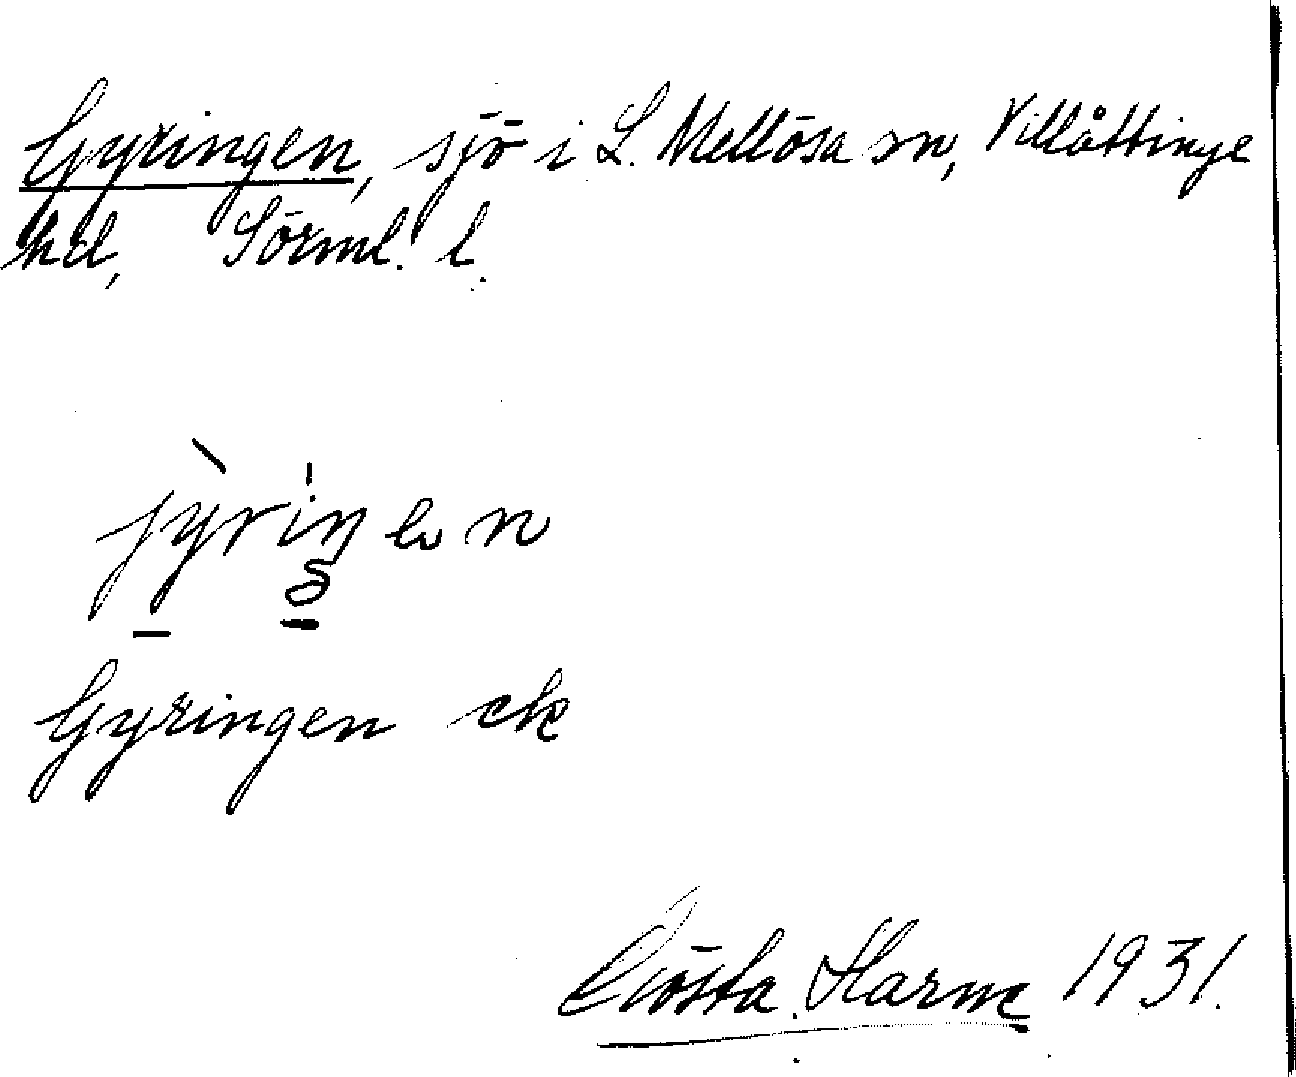 Gyringen, sjö i L. Mellösa sn, Villåttinge
hd, Sörml. l.
jy̠riŋen
Gyringen ek
Gösta Harme 1931.